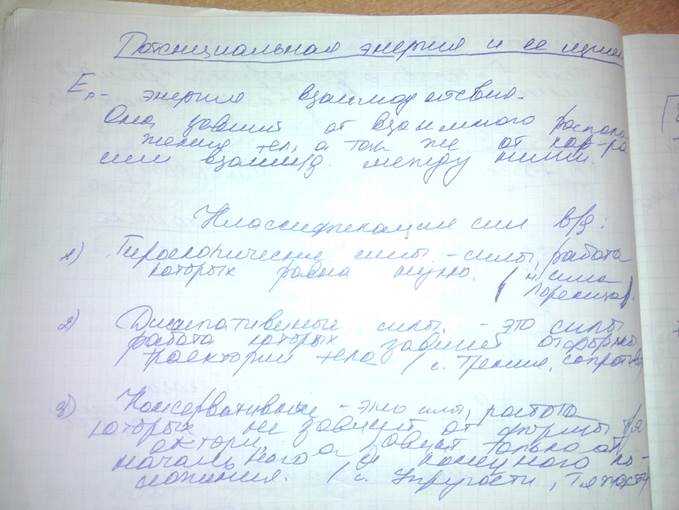 Потенциальная энергия и ее
Eр - энергия взаимодействия.
Она зависит от взаимного распол
жения тел, а так же от хар-ра
сил взаимод между ними.
Классификация сил в/д:
1) Гироскопические силы - силы, работа
которых равна нулю. (н. сила
Лоренца).
2) Диссипативные силы - это силы
работа которых зависит от формы
траектории тела (с. Трения, сопротив
3) Консервативные - это силы, работа
которых не зависит от формы тра
ектории, а зависит только от
начального и конечного по
ложения. (с. Упругости, Тяжести